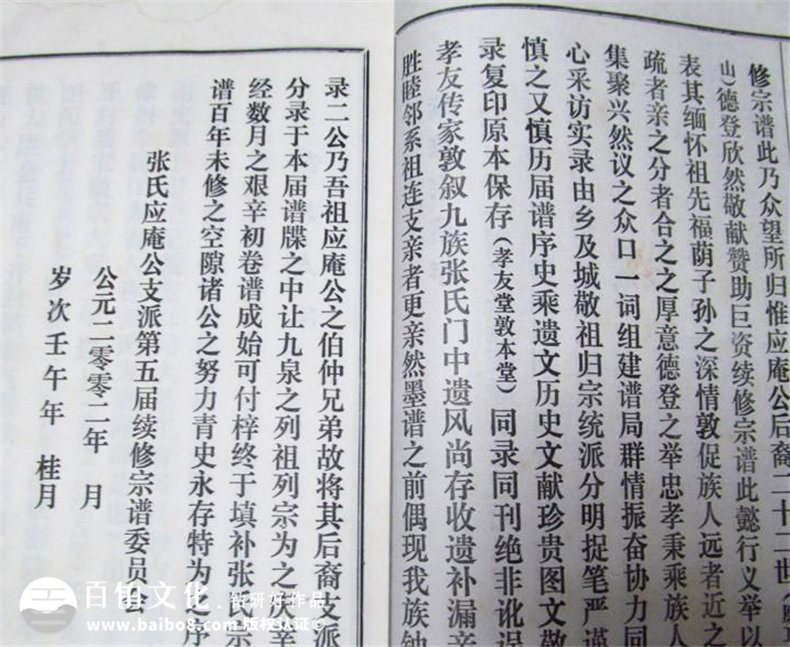 修宗谱此乃众望所归惟应庵公后裔二十二世(
山)德登欣然敬献赞助巨资续修宗谱此懿行义举以
表其缅怀祖先福荫子孙之深情敦促族人远者近之
疏者亲之分者合之之厚意德登之举忠孝秉乘族人
集聚兴然议之众口一词组建谱局群情振奋协力同
心采访实录由乡及城敬祖归宗统派分明捉笔严谨
慎之又慎历届谱序史乘遗文历史文献珍贵图文敬
录复印原本保存(孝友堂敦本堂)同录同刊绝非讹误
孝友传家敦叙九族张氏门中遗风尚存收遗补漏亲
胜睦邻系祖连支亲者更亲然墨谱之前偶现我族钟
录二公乃吾祖应庵公之伯仲兄弟故将其后裔支派
分录于本届谱牒之中让九泉之列祖列宗为之
经数月之艰辛初卷谱成始可付梓终于填补张
谱百年未修之空隙诸公之努力青史永存特为序
张氏应庵公支派第五届续修宗谱委员
公元二零零二年 月
岁次壬午年 桂月
百铂文化 钻研好作品
www.baibo8.com 版权认证©